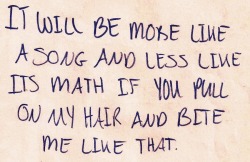 IT WILL BE MORE LIKE
A SONG AND LESS LIKE
ITS MATH IF YOU PULL
ON MY HAIR AND BITE
ME LIKE THAT.